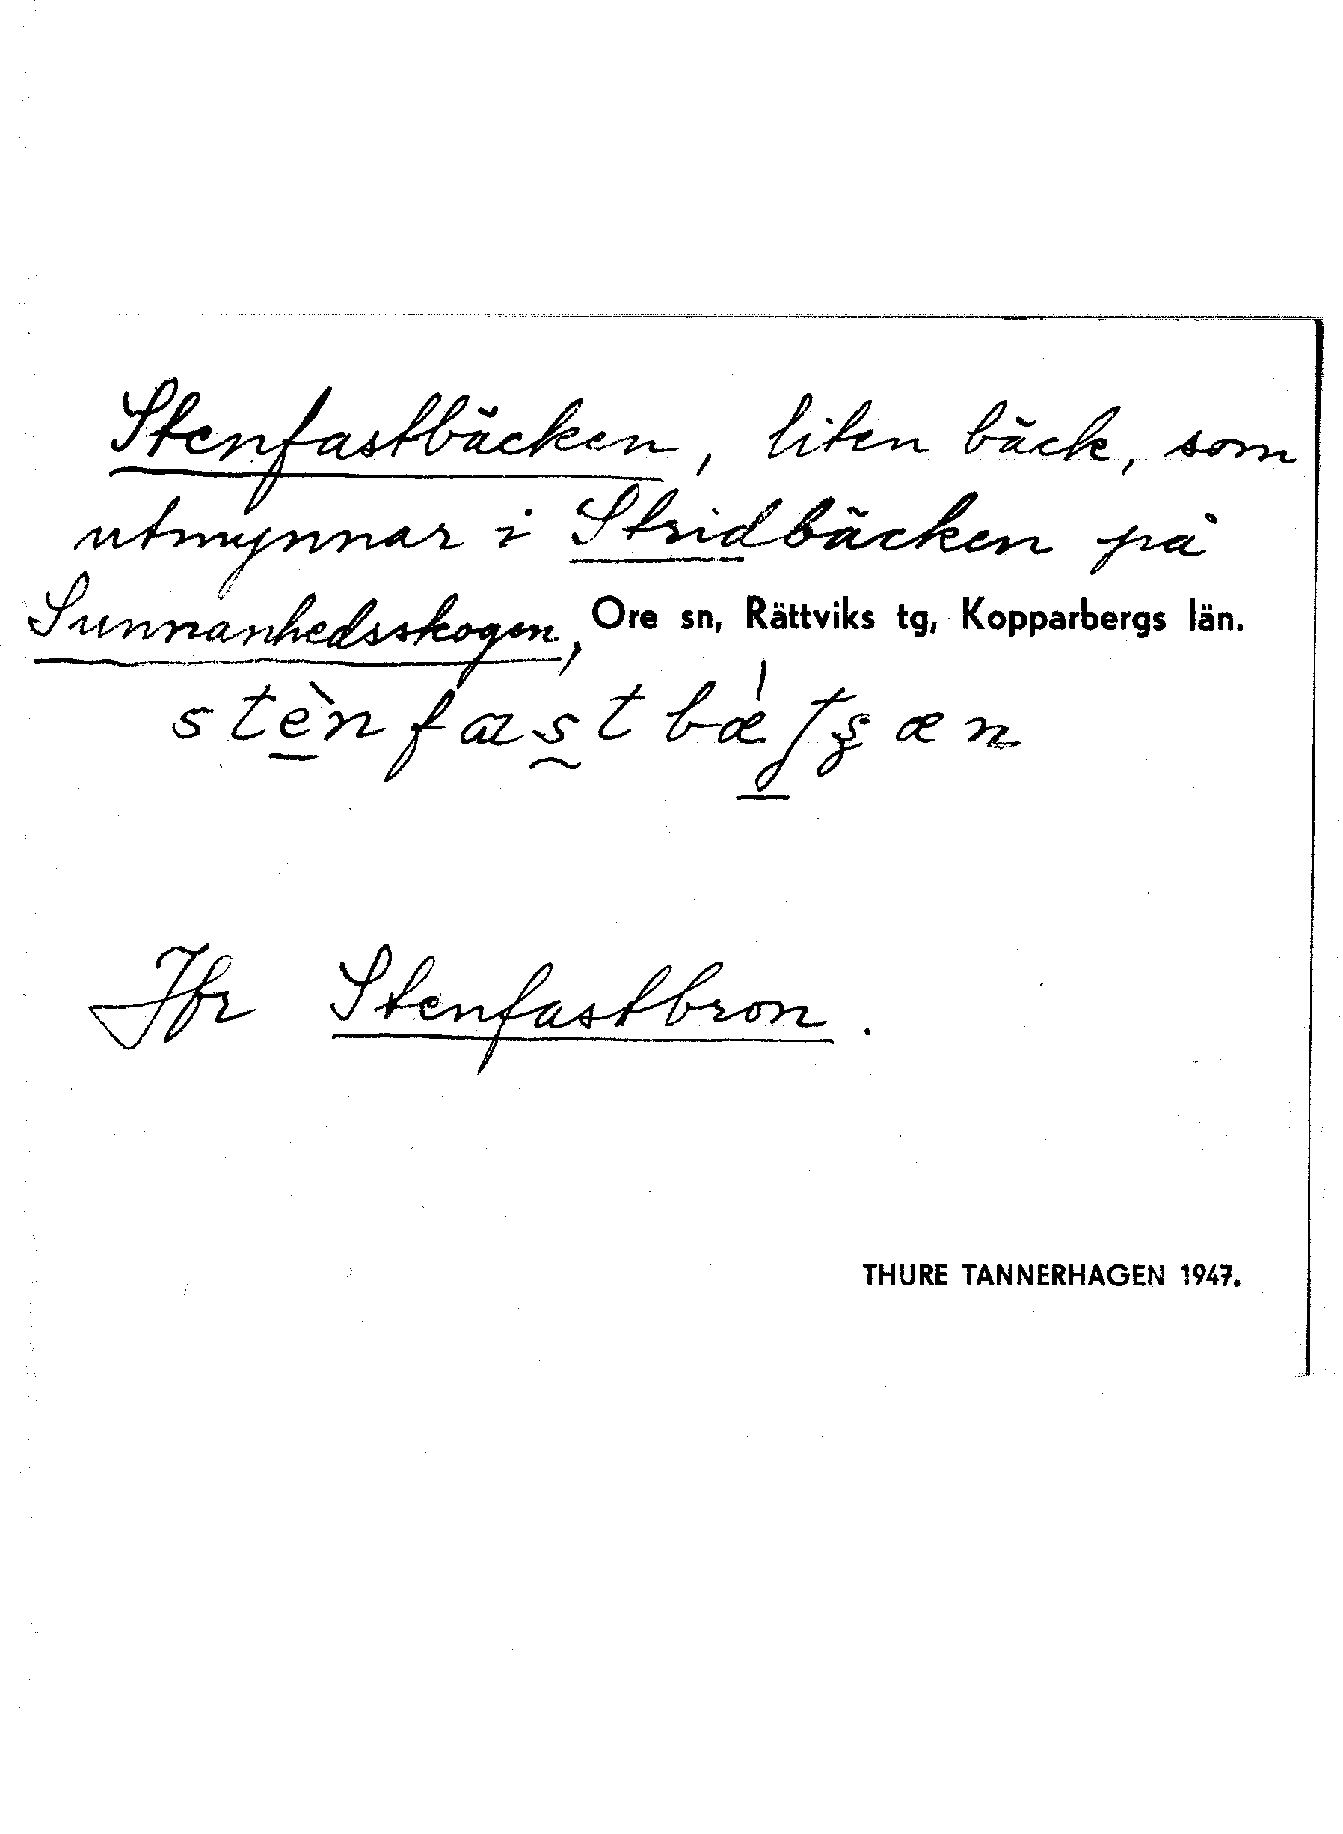 Stenfastbäcken, liten bäck, som
utmynnar i Stridbäcken på
Sunnanhedsskogen, Ore sn, Rättviks tg, Kopparbergs län.
Jfr Stenfastbron.
THURE TANNERHAGEN 1947.